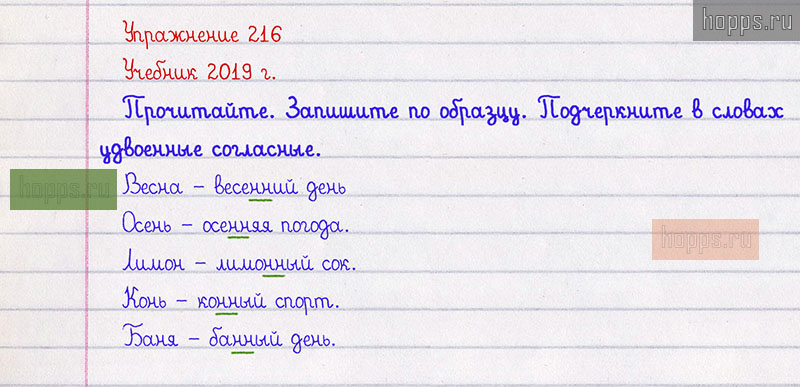 hopps.ru
Упражнение 216
Учебник 2019 г.
Прочитайте. Запишите по образцу. Подчеркните в словах
удвоенные согласные.
hopps.ru
Весна – весенний день
Осень – осенняя погода.
hopps.ru
Лимон – лимонный сок.
Конь – конный спорт.
Баня – банный день.